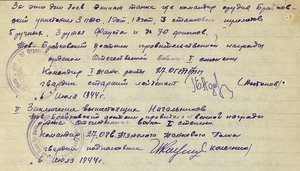 За эти дни боев экипаж танка где командир орудия Бряковский, уничтожил 3 пто, 1 танк, 3 станковых пулемета
5 ручных, 3 и до 70 фрицев.
Тов. Бряковский достоин правительственной награды
орденом Отечественной войны II степени.
Командир I танк. роты 27 ОГТТП
гвардии старший лейтенант (Антонов)
6 июля 1944г.
II Заключение вышестоящих Начальников
Тов. Бряковский достоин правительственной награды
ордена Отечественной войны II степени.
Командир 27 отд. Тяжелого Танкового Полка
гвардии подполковник
6 июля 1944г.